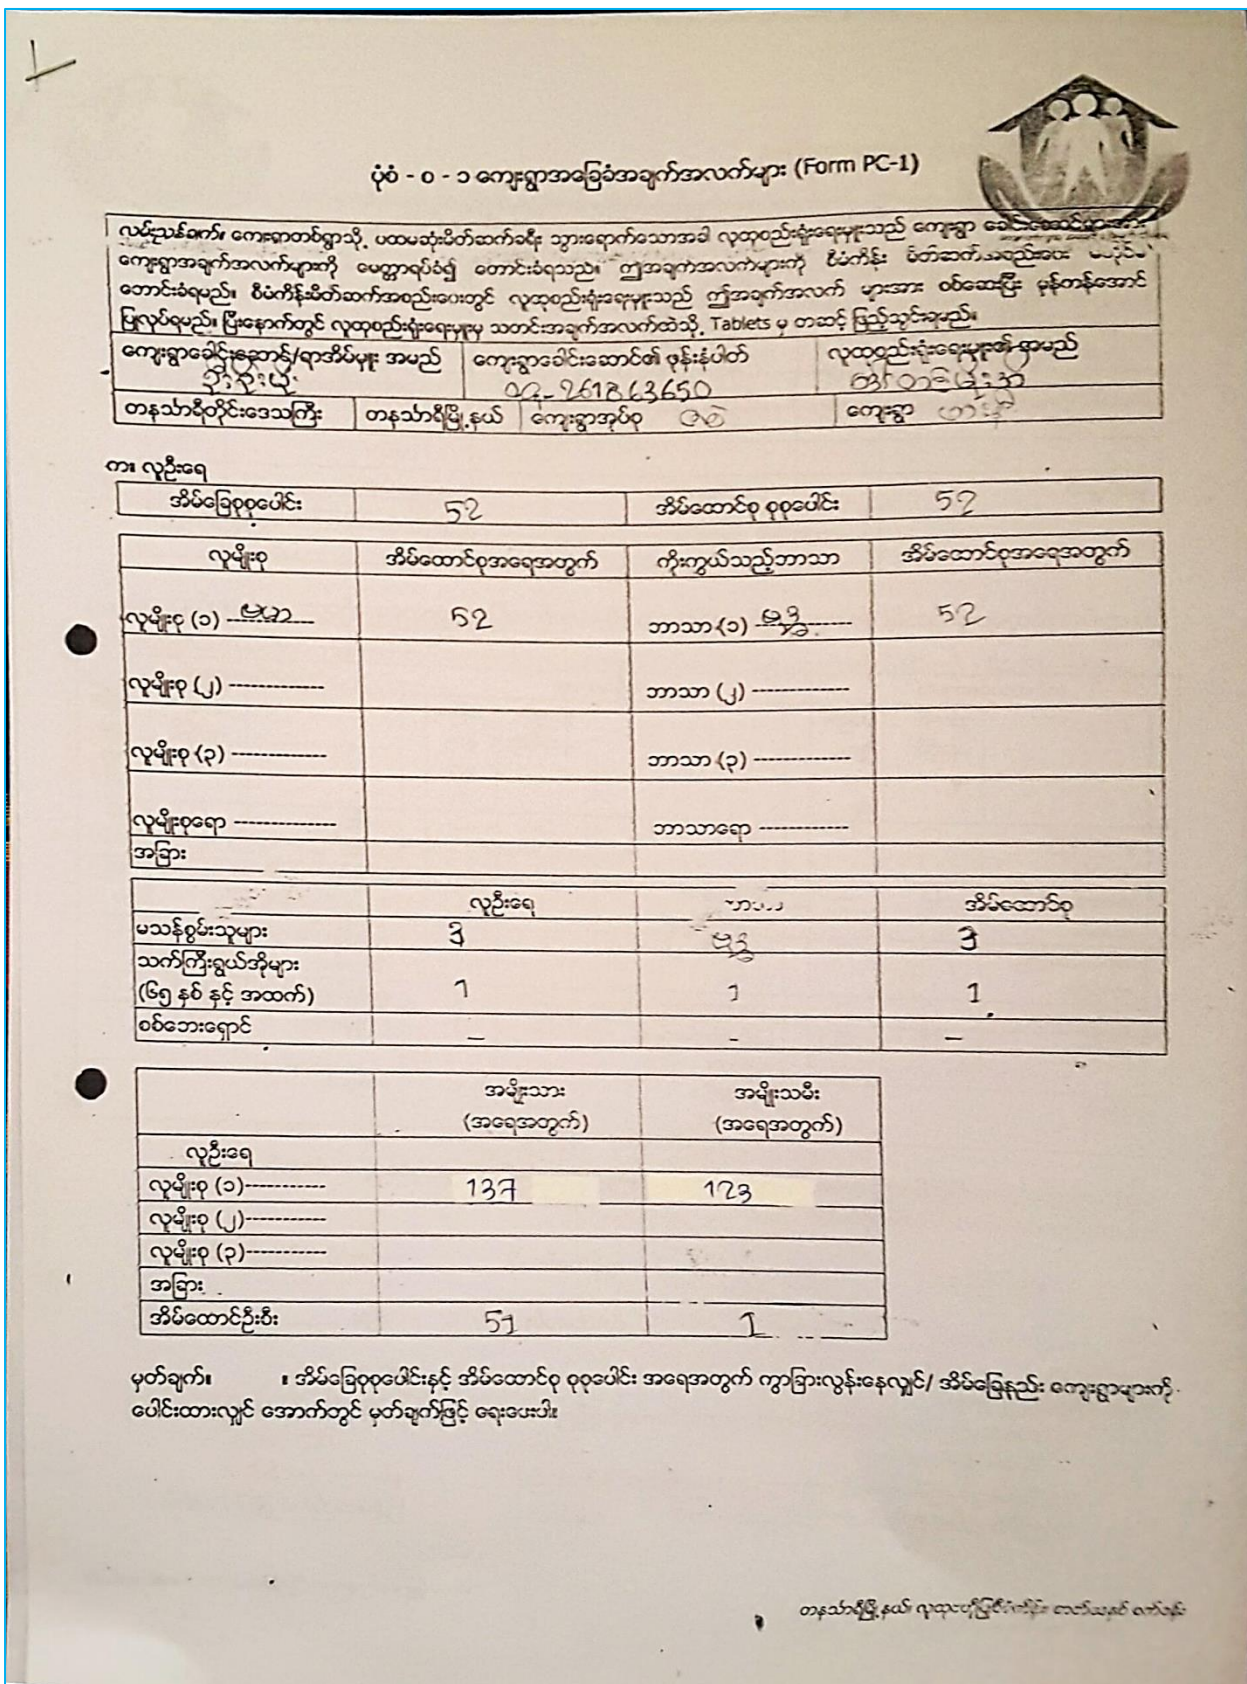 ပုံစံ - ၀ - ၁ ကျေးရွာအခြေခံအချက်အလက်များ (Form PC-1)
လမ်းညွှန်ချက်။ ကျေးရွာတစ်ရွာသို့ ပထမဆုံးမိတ်ဆက်ခရီး သွားရောက်သောအခါ လူထုစည်းရုံးရေးမှူးသည် ကျေးရွာ ခေါင်းဆောင်များအား
ကျေးရွာအချက်အလက်များကို မေတ္တာရပ်ခံ၍ တောင်းခံရသည်။ ဤအချက်အလက်များကို စီမံကိန်း မိတ်ဆက်အစည်းအဝေး မတိုင်မီ
တောင်းခံရမည်။ စီမံကိန်းမိတ်ဆက်အစည်းအဝေးတွင် လူထုစည်းရုံးရေးမှူးသည် ဤအချက်အလက် များအား စစ်ဆေးပြီး မှန်ကန်အောင်
ပြုလုပ်ရမည်။ ပြီးနောက်တွင် လူထုစည်းရုံးရေးမှူးမှ သတင်းအချက်အလက်ထဲသို့ Tablets မှ တဆင့် ဖြည့်သွင်းရမည်။
ကျေးရွာခေါင်းဆောင်/ရာအိမ်မှူး အမည် ကျေးရွာခေါင်းဆောင်၏ ဖုန်းနံပါတ် လူထုစည်းရုံးရေးမှူး၏ အမည်
09-261863650
တနင်္သာရီတိုင်းဒေသကြီး တနင်္သာရီမြို့နယ် ကျေးရွာအုပ်စု ကျေးရွာ
က။ လူဦးရေ
အိမ်ခြေစုစုပေါင်း 52 အိမ်ထောင်စု စုစုပေါင်း 52
လူမျိုးစု အိမ်ထောင်စုအရေအတွက် ကိုးကွယ်သည့်ဘာသာ အိမ်ထောင်စုအရေအတွက်
လူမျိုးစု (၁) ဗမာ 52 ဘာသာ (၁) ဗုဒ္ဓ 52
လူမျိုးစု (၂) -------------- ဘာသာ (၂) --------------
လူမျိုးစု (၃) -------------- ဘာသာ (၃) --------------
လူမျိုးစုရော --------------- ဘာသာရော -------------
အခြား
လူဦးရေ ဘာသာ အိမ်ထောင်စု
မသန်စွမ်းသူများ 3 ဗုဒ္ဓ 3
သက်ကြီးရွယ်အိုများ
(၆၅ နှစ် နှင့် အထက်) 1 1 1
စစ်ဘေးရှောင် - - -
အမျိုးသား အမျိုးသမီး
(အရေအတွက်) (အရေအတွက်)
လူဦးရေ
လူမျိုးစု (၁)------------ 137 123
လူမျိုးစု (၂)------------
လူမျိုးစု (၃)------------
အခြား
အိမ်ထောင်ဦးစီး 51 1
မှတ်ချက်။ ။ အိမ်ခြေစုစုပေါင်းနှင့် အိမ်ထောင်စု စုစုပေါင်း အရေအတွက် ကွာခြားလွန်းနေလျှင်/ အိမ်ခြေနည်း ကျေးရွာများကို
ပေါင်းထားလျှင် အောက်တွင် မှတ်ချက်ဖြင့် ရေးပေးပါ။
တနင်္သာရီမြို့နယ်၊